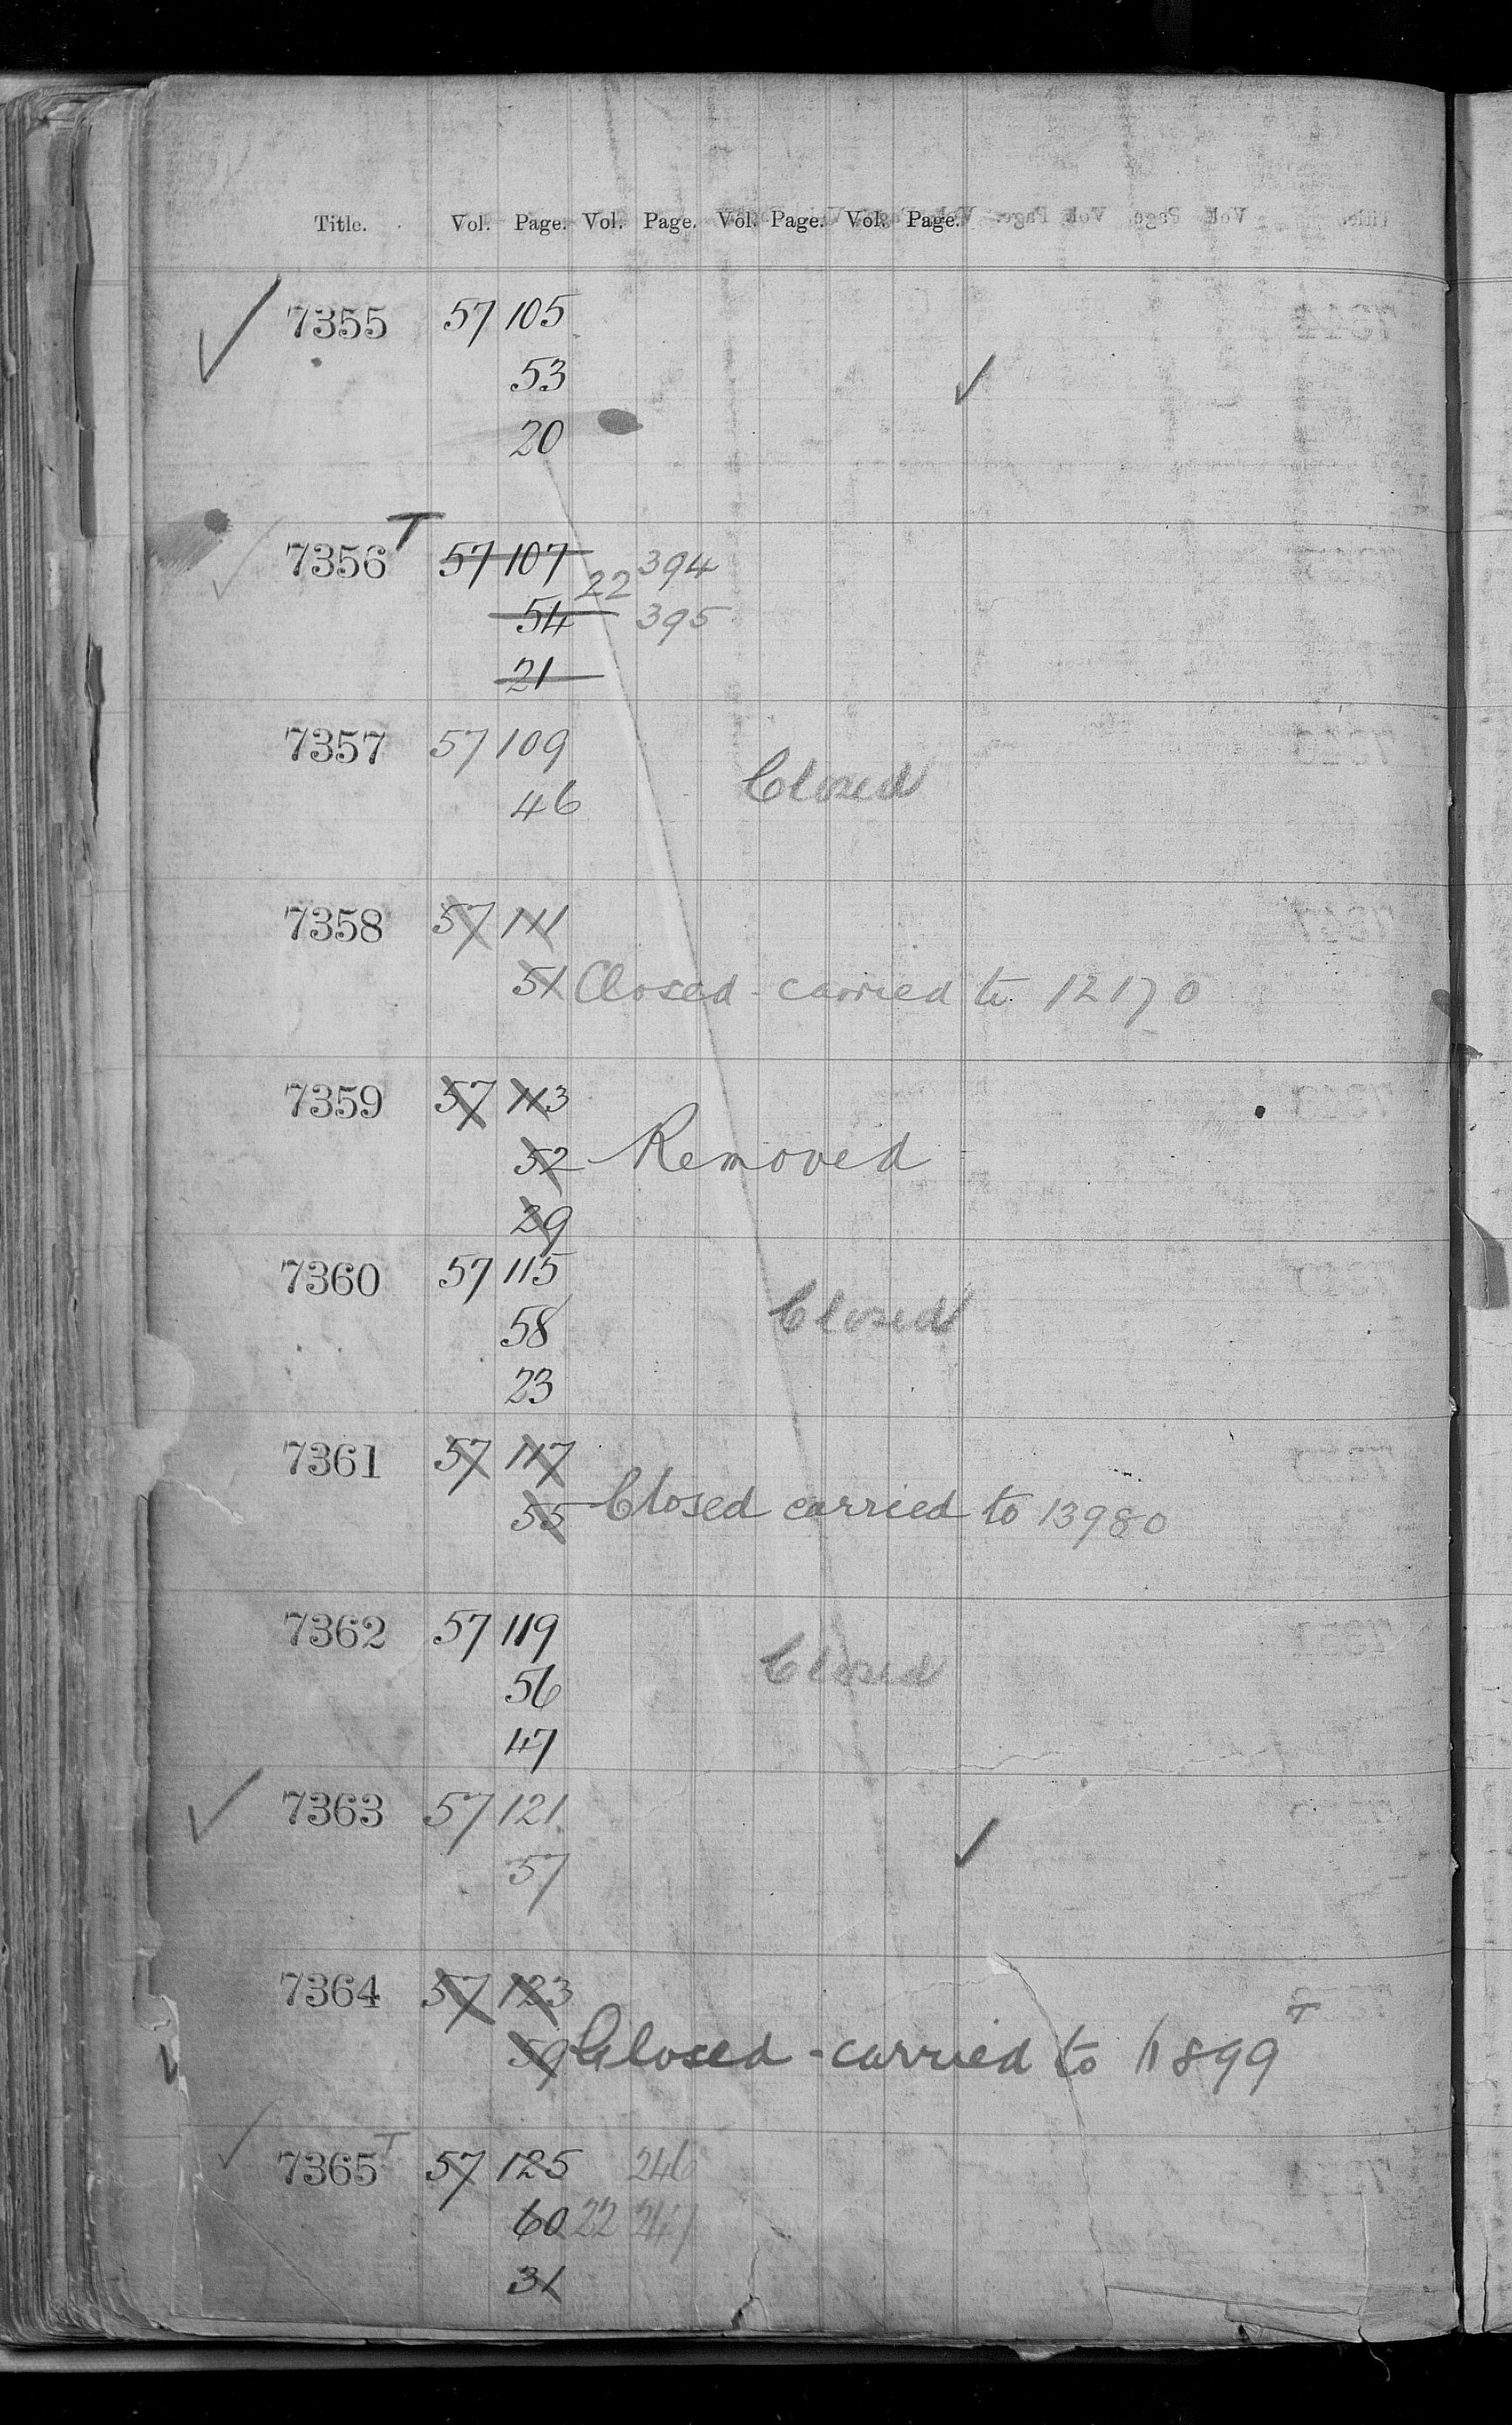 Title. Vol. Page. Vol. Page. Vol. Page. Vol. Page.
7355 57 105
53
20
7356 T 57 107 22 394
54 395
21
7357 57 109
46 Closed
7358 57 111
51 Closed - carried to 12170
7359 57 113
52 Removed
29
7360 57 115
58 Closed
23
7361 57 117
55 Closed carried to 13980
7362 57 119
56 Closed
47
7363 57 121
57
7364 57 123
59 Closed - carried to 11899 T
7365 T 57 125 246
60 22 247
31